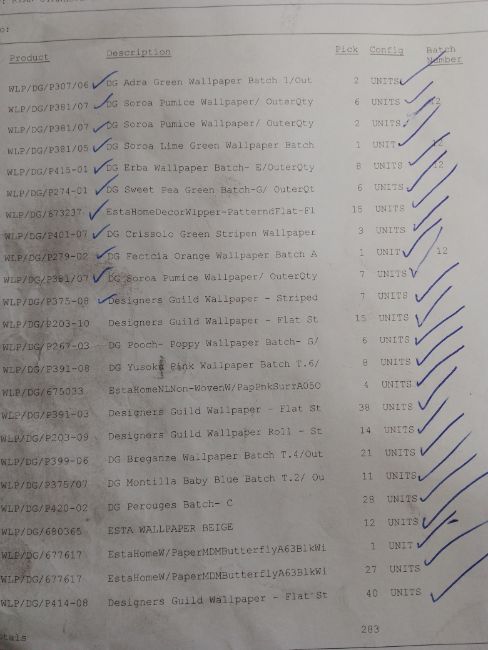 Product Description Pick Config Batch Number
WLP/DG/P307/06 DG Adra Green Wallpaper Batch 1/Out 2 UNITS
WLP/DG/P381/07 DG Soroa Pumice Wallpaper/ OuterQty 6 UNITS 12
WLP/DG/P381/07 DG Soroa Pumice Wallpaper/ OuterQty 2 UNITS
WLP/DG/P381/05 DG Soroa Lime Green Wallpaper Batch 1 UNIT 12
WLP/DG/P415-01 DG Erba Wallpaper Batch- E/OuterQty 8 UNITS 12
WLP/DG/P274-01 DG Sweet Pea Green Batch-G/ OuterQt 6 UNITS
WLP/DG/673237 EstaHomeDecorWlpper-PatterndFlat-Fl 15 UNITS
WLP/DG/P401-07 DG Crissolo Green Stripen Wallpaper 3 UNITS
WLP/DG/P279-02 DG Fectcia Orange Wallpaper Batch A 1 UNIT 12
WLP/DG/P381/07 DG Soroa Pumice Wallpaper/ OuterQty 7 UNITS
WLP/DG/P375-08 Designers Guild Wallpaper - Striped 7 UNITS
WLP/DG/P203-10 Designers Guild Wallpaper - Flat St 15 UNITS
WLP/DG/P267-03 DG Pooch- Poppy Wallpaper Batch- G/ 6 UNITS
WLP/DG/P391-08 DG Yusoku Pink Wallpaper Batch T.6/ 8 UNITS
WLP/DG/675033 EstaHomeNLNon-WovenW/PapPnkSurrA05C 4 UNITS
WLP/DG/P391-03 Designers Guild Wallpaper - Flat St 38 UNITS
WLP/DG/P203-09 Designers Guild Wallpaper Roll - St 14 UNITS
WLP/DG/P399-06 DG Breganze Wallpaper Batch T.4/Out 21 UNITS
WLP/DG/P375/07 DG Montilla Baby Blue Batch T.2/ Ou 11 UNITS
WLP/DG/P420-02 DG Perouges Batch- C 28 UNITS
WLP/DG/680365 ESTA WALLPAPER BEIGE 12 UNITS
WLP/DG/677617 EstaHomeW/PaperMDMButterflyA63BlkWi 1 UNIT
WLP/DG/677617 EstaHomeW/PaperMDMButterflyA63BlkWi 27 UNITS
WLP/DG/P414-08 Designers Guild Wallpaper - Flat St 40 UNITS
283